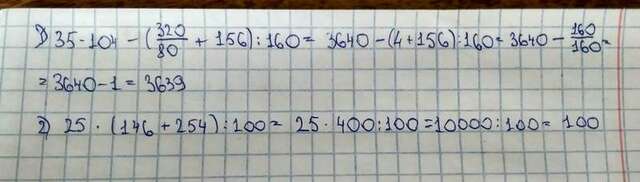 1) 35·104-(320/80+156):160= 3640-(4+156):160=3640-160/160=
=3640-1=3639
2) 25·(146+254):100= 25·400:100=10000:100=100